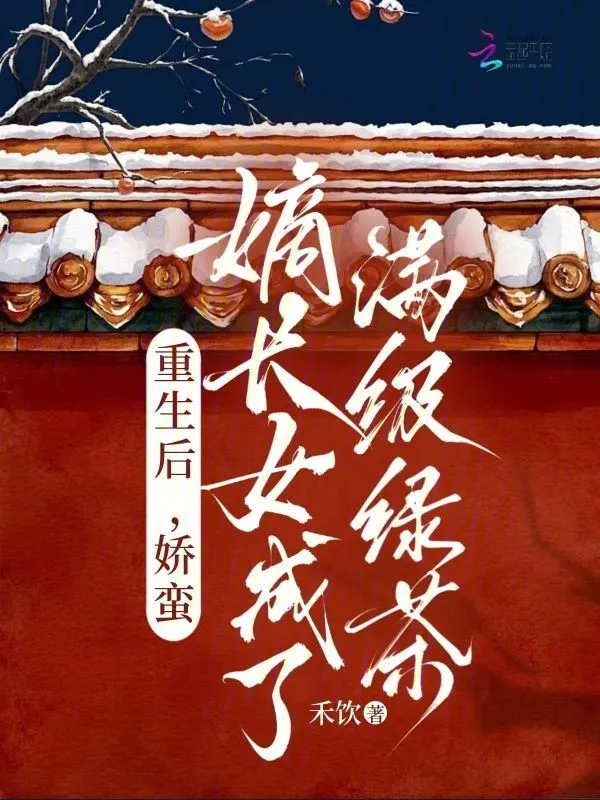 云起书院
yunqi.qq.com
重生后，娇蛮
嫡长女成了
满级绿茶
禾饮 著